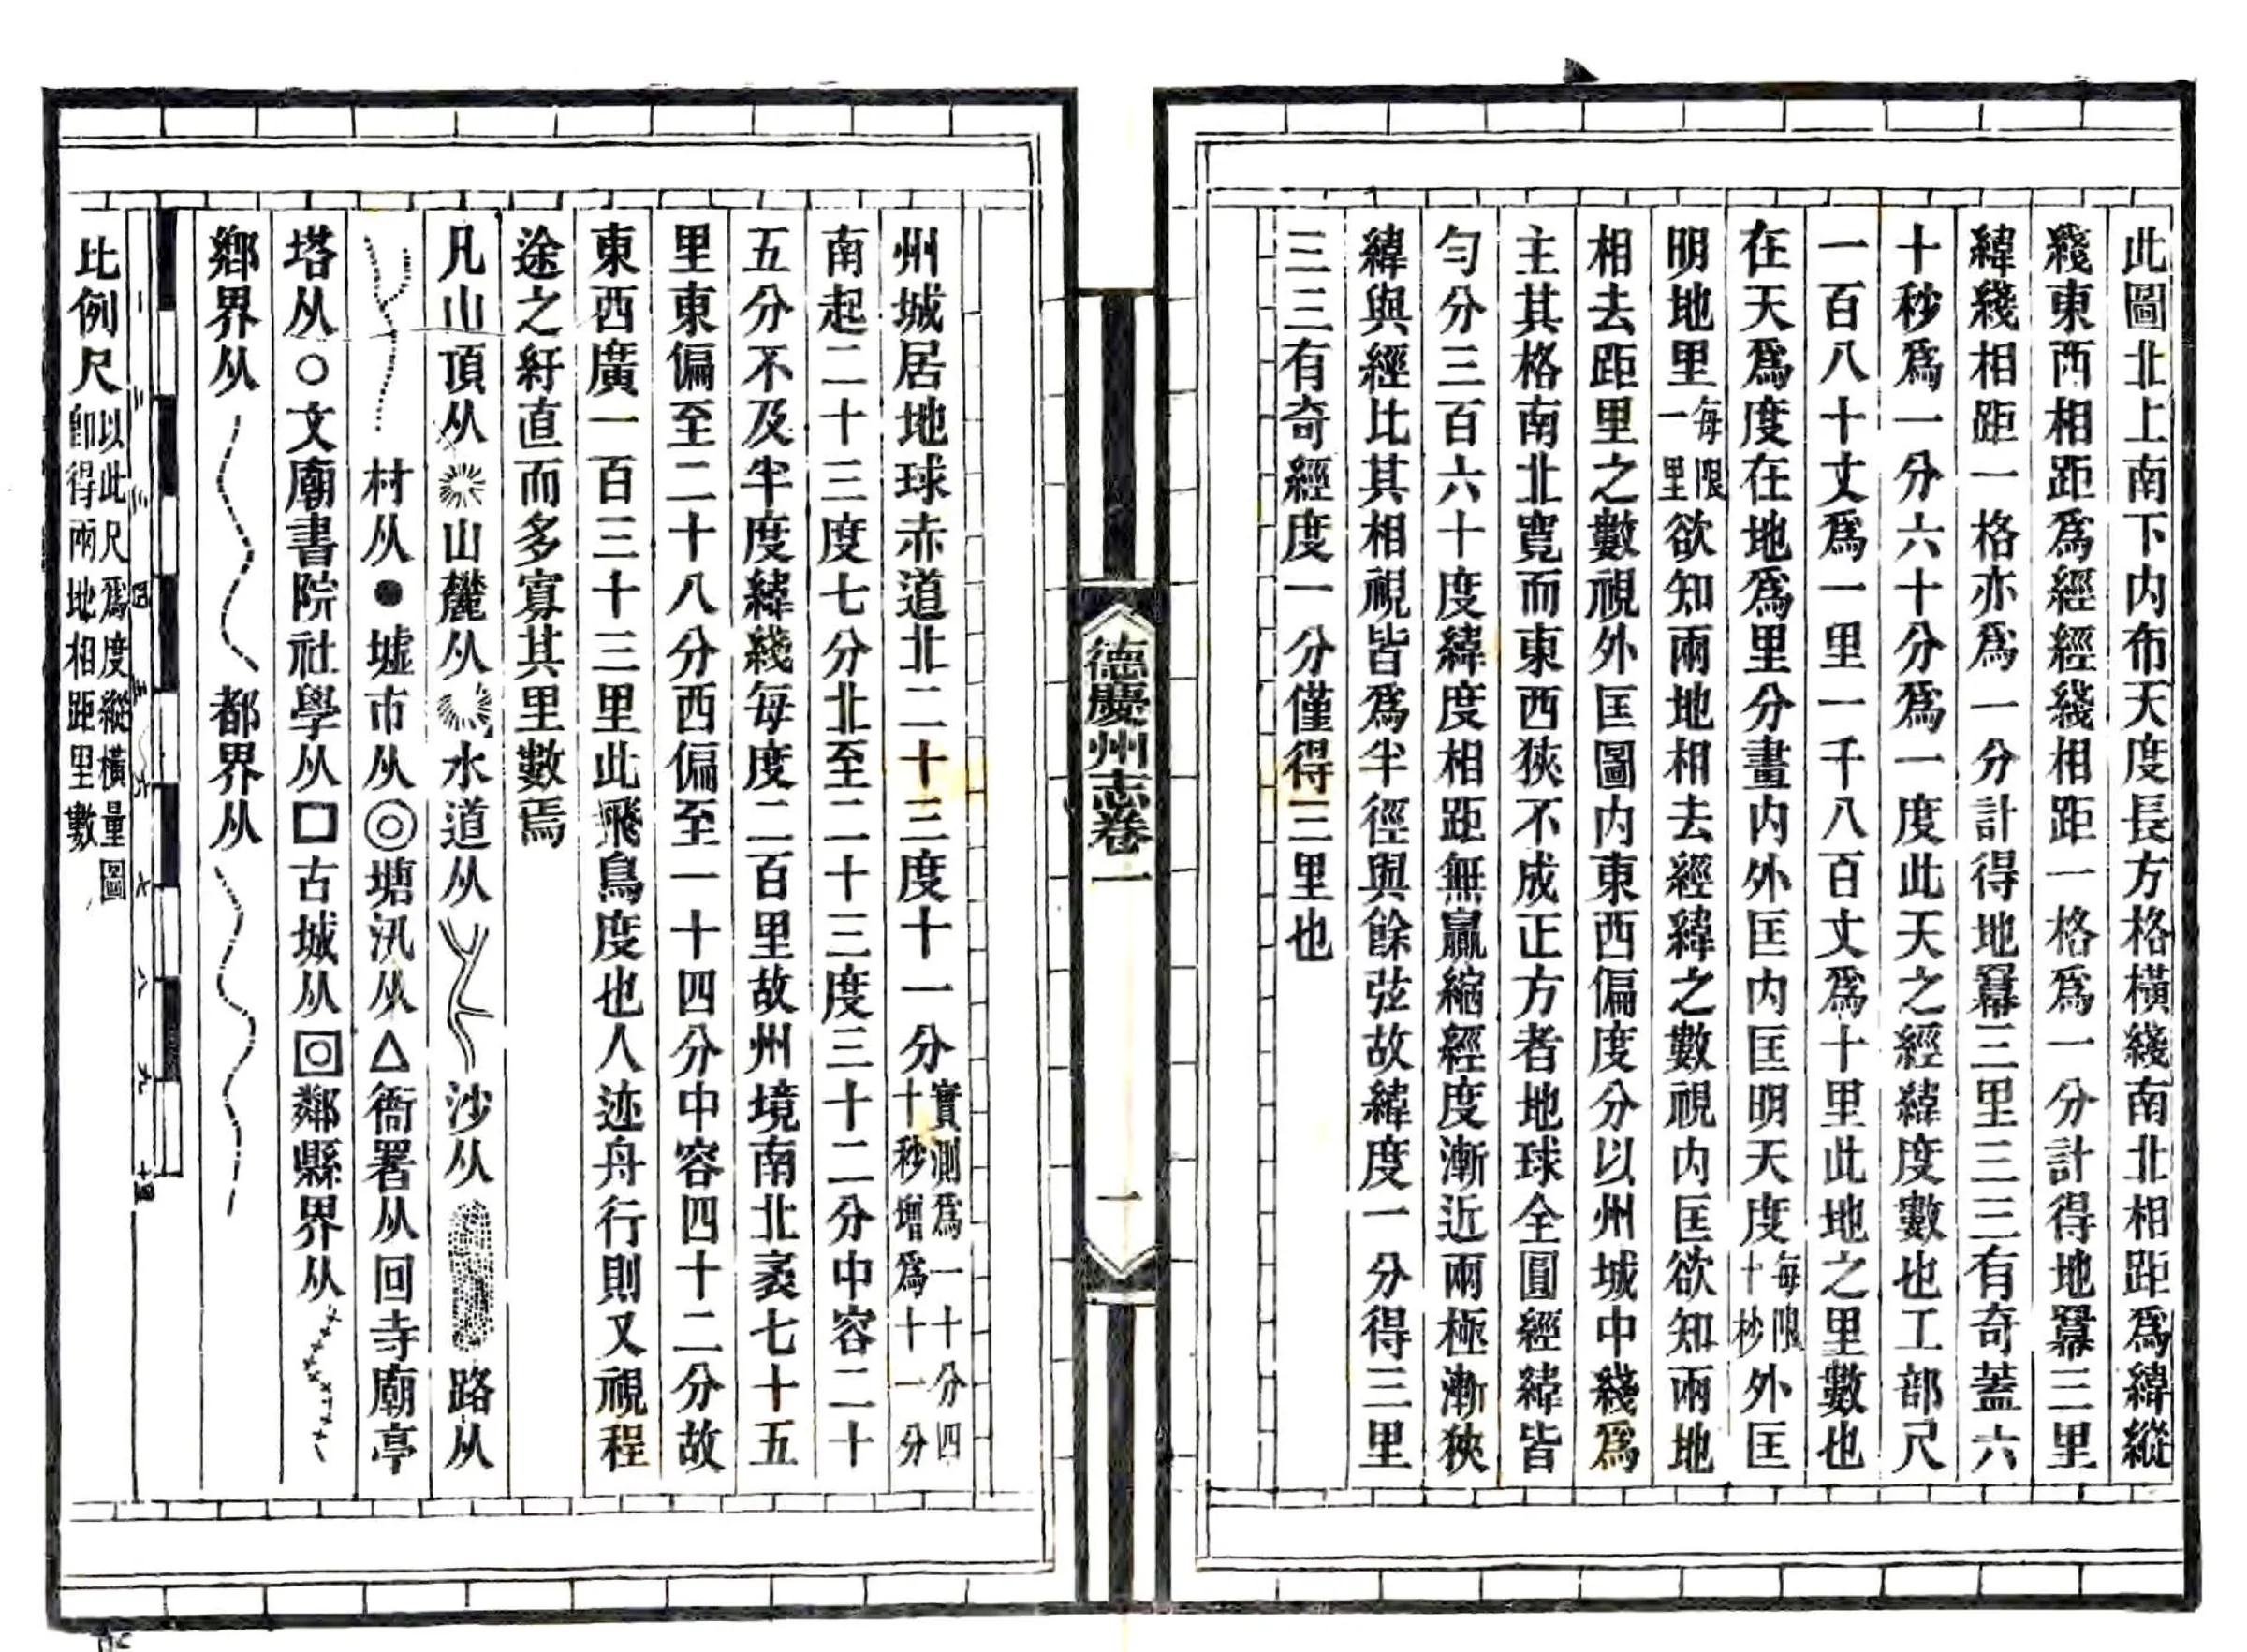 此圖北上南下内布天度長方格橫綫南北相距爲緯縱
綫東西相距爲經經綫相距一格爲一分計得地羃三里
緯綫相距一格亦爲一分計得地羃三里三三有奇蓋六
十秒爲一分六十分爲一度此天之經緯度數也工部尺
一百八十丈爲一里一千八百丈爲十里此地之里數也
在天爲度在地爲里分畫内外匡内匡明天度每限十秒外匡
明地里每限一里欲知兩地相去經緯之數視内匡欲知兩地
相去距里之數視外匡圖内東西偏度分以州城中綫爲
主其格南北寬而東西狹不成正方者地球全圓經緯皆
匀分三百六十度緯度相距無贏縮經度漸近兩極漸狹
緯與經比其相視皆爲半徑與餘弦故緯度一分得三里
三三有奇經度一分僅得三里也
德慶州志卷一
一
州城居地球赤道北二十三度十一分實測爲一十分四十秒增爲十一分
南起二十三度七分北至二十三度三十二分中容二十
五分不及半度緯綫每度二百里故州境南北袤七十五
里東偏至二十八分西偏至一十四分中容四十二分故
東西廣一百三十三里此飛鳥度也人迹舟行則又視程
途之紆直而多寡其里數焉
凡山頂从山麓从水道从沙从路从
村从●墟市从◎塘汛从△衙署从回寺廟亭
塔从○文廟書院社學从口古城从鄰縣界从
鄉界从都界从
一二三四五六七八九十里
比例尺以此尺爲度縱橫量圖即得兩地相距里數